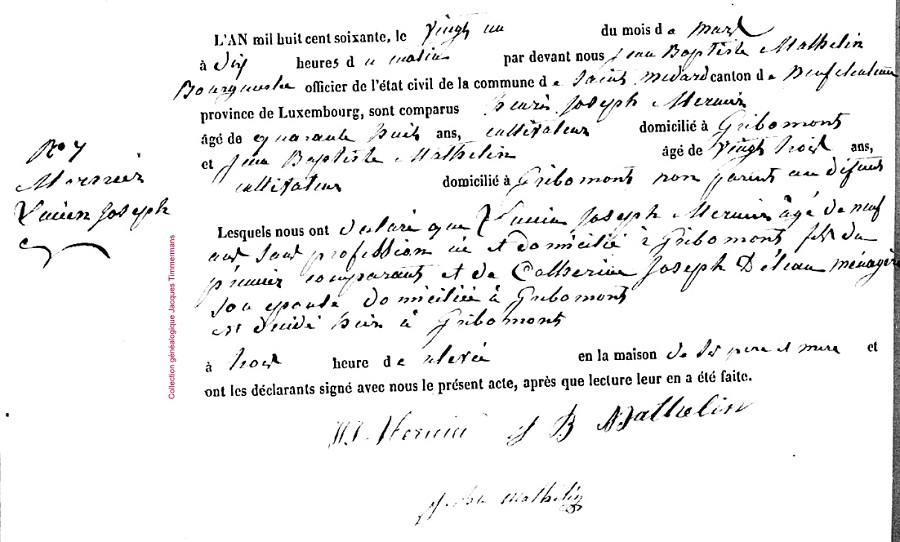 L'AN mil huit cent soixante, le vingt un du mois de mars
à dix heures du matin par devant nous Jean Baptiste Mathelin
Bourguestre officier de l'état civil de la commune de Saint Medard canton de Neufchateau
province de Luxembourg, sont comparus henri Joseph Mernier
âgé de quarante huit ans, cultivateur domicilié à Gribomont
et Jean Baptiste Mathelin âgé de vingt trois ans,
cultivateur domicilié à Gribomont non parent au défunt
Lesquels nous ont declaré que Lucien Joseph Mernier âgé de neuf
ans sans profession né et domicilié à Gribomont fils du
prémier comparant et de Catherine Joseph Déleau ménagère
son epouse domiciliée à Gribomont
est décidé hier à Gribomont
à trois heure de relevée en la maison de ses pere et mere et
ont les déclarants signé avec nous le présent acte, après que lecture leur en a été faite.
N° 7
Mernier
Lucien Joseph
Collection généalogique Jacques Timmermans
H.J. Mernier J B Mathelin
Mathelin